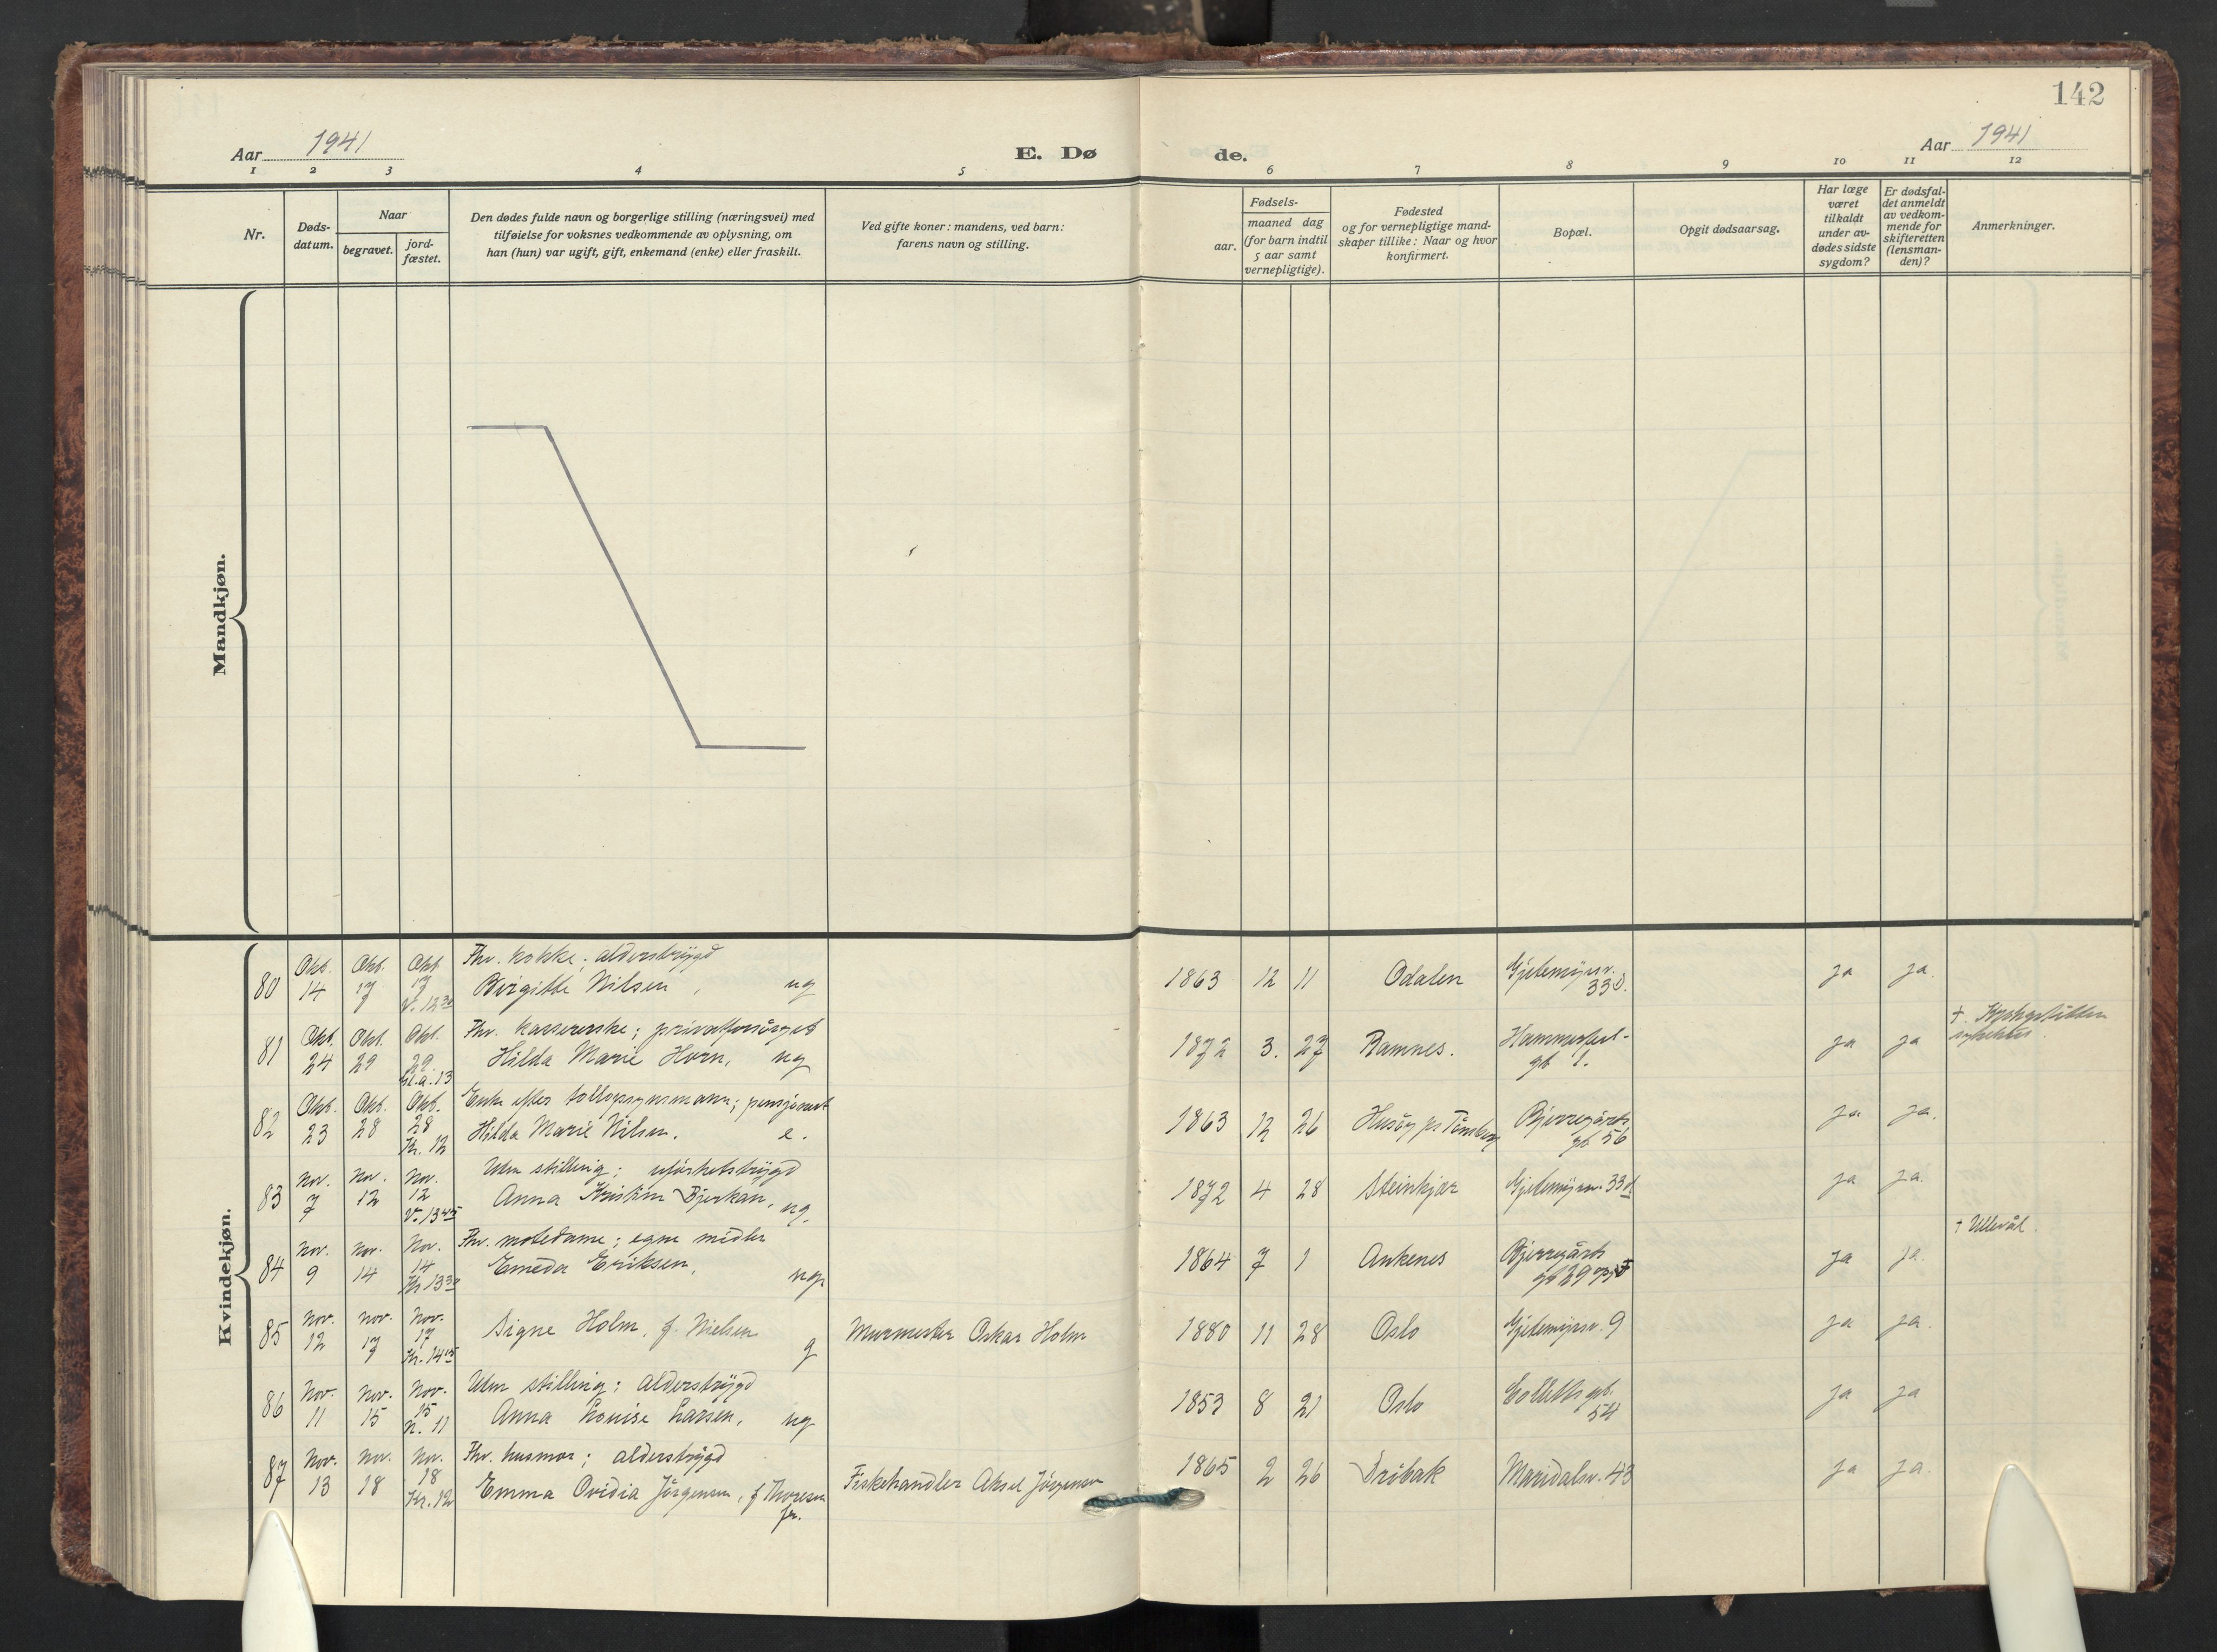 142
Aar 1941
E. Dø
de.
Aar 1941
1 2 3 4 5 6 7 8 9 10 11 12
Nr.
Døds-
datum.
Naar
begravet.
jord-
fæstet.
Den dødes fulde navn og borgerlige stilling (næringsvei) med
tilføielse for voksnes vedkommende av oplysning, om
han (hun) var ugift, gift, enkemand (enke) eller fraskilt.
Ved gifte koner: mandens, ved barn:
farens navn og stilling.
Fødsels-
aar.
maaned dag
(for barn indtil
5 aar samt
vernepligtige).
Fødested
og for vernepligtige mand-
skaper tillike: Naar og hvor
konfirmert.
Bopæl.
Opgit dødsaarsag.
Har læge
været
tilkaldt
under av-
dødes sidste
sygdom?
Er dødsfal-
det anmeldt
av vedkom-
mende for
skifteretten
(lensman-
den)?
Anmerkninger.
Mandkjøn.
Kvindekjøn.
Okt. Okt. Okt. Fhv. kokke; alderstrygd
80 14 17 17 Birgitte Nilsen, ug 1863 12 11 Odalen Gjetemyrsv. ja ja.
V. 12 30 33 d.
Okt. Okt. Okt. Fhv. kassererske; privatforsørget
81 24 29 29 Hilda Marie Horn, ug 1872 3. 27 Ramnes. Hammerfest- ja ja
13 gt 1.
Okt. Okt. Okt. Enke efter tollopsynsmann; pensjonert
82 23 28 28 Hilda Marie Nilsen. e. 1863 12 26 Husøy pr Tønsberg Bjerregårds ja ja.
Kr. 12 gt 56
Nov. Nov. Nov. Uten stilling; uførhetstrygd
83 7 12 12 Anna Kristine Bjerkan, ug. 1872 4 28 Steinkjær Gjetemyrsv. 33 d ja ja.
V. 13 45
Nov. Nov. Nov. Fhv. motedame; egne midler
84 9 14 14 Emeda Eriksen, ug. 1864 7 1 Ankenes Bjerregårds ja ja. † Ullevål.
Kr 13 30 gt 29
Nov. Nov. Nov.
85 12 17 17 Signe Holm, f. Nielsen g Murmester Oskar Holm 1880 11 28 Oslo Gjetemyrsv. 9 ja ja.
Kr. 14 15
Nov. Nov. Nov. Uten stilling; alderstrygd
86 11 15 15 Anna Louise Larsen, ug 1853 8 21 Oslo Colletts gt. ja ja
N. 11 54
Nov. Nov. Nov. Fhv. husmor; alderstrygd
87 13 18 18 Emma Ovidia Jørgensen, f Thoresen Fiskehandler Aksel Jørgensen 1865 2 26 Drøbak Maridalsv. 43 ja ja.
Kr. 12